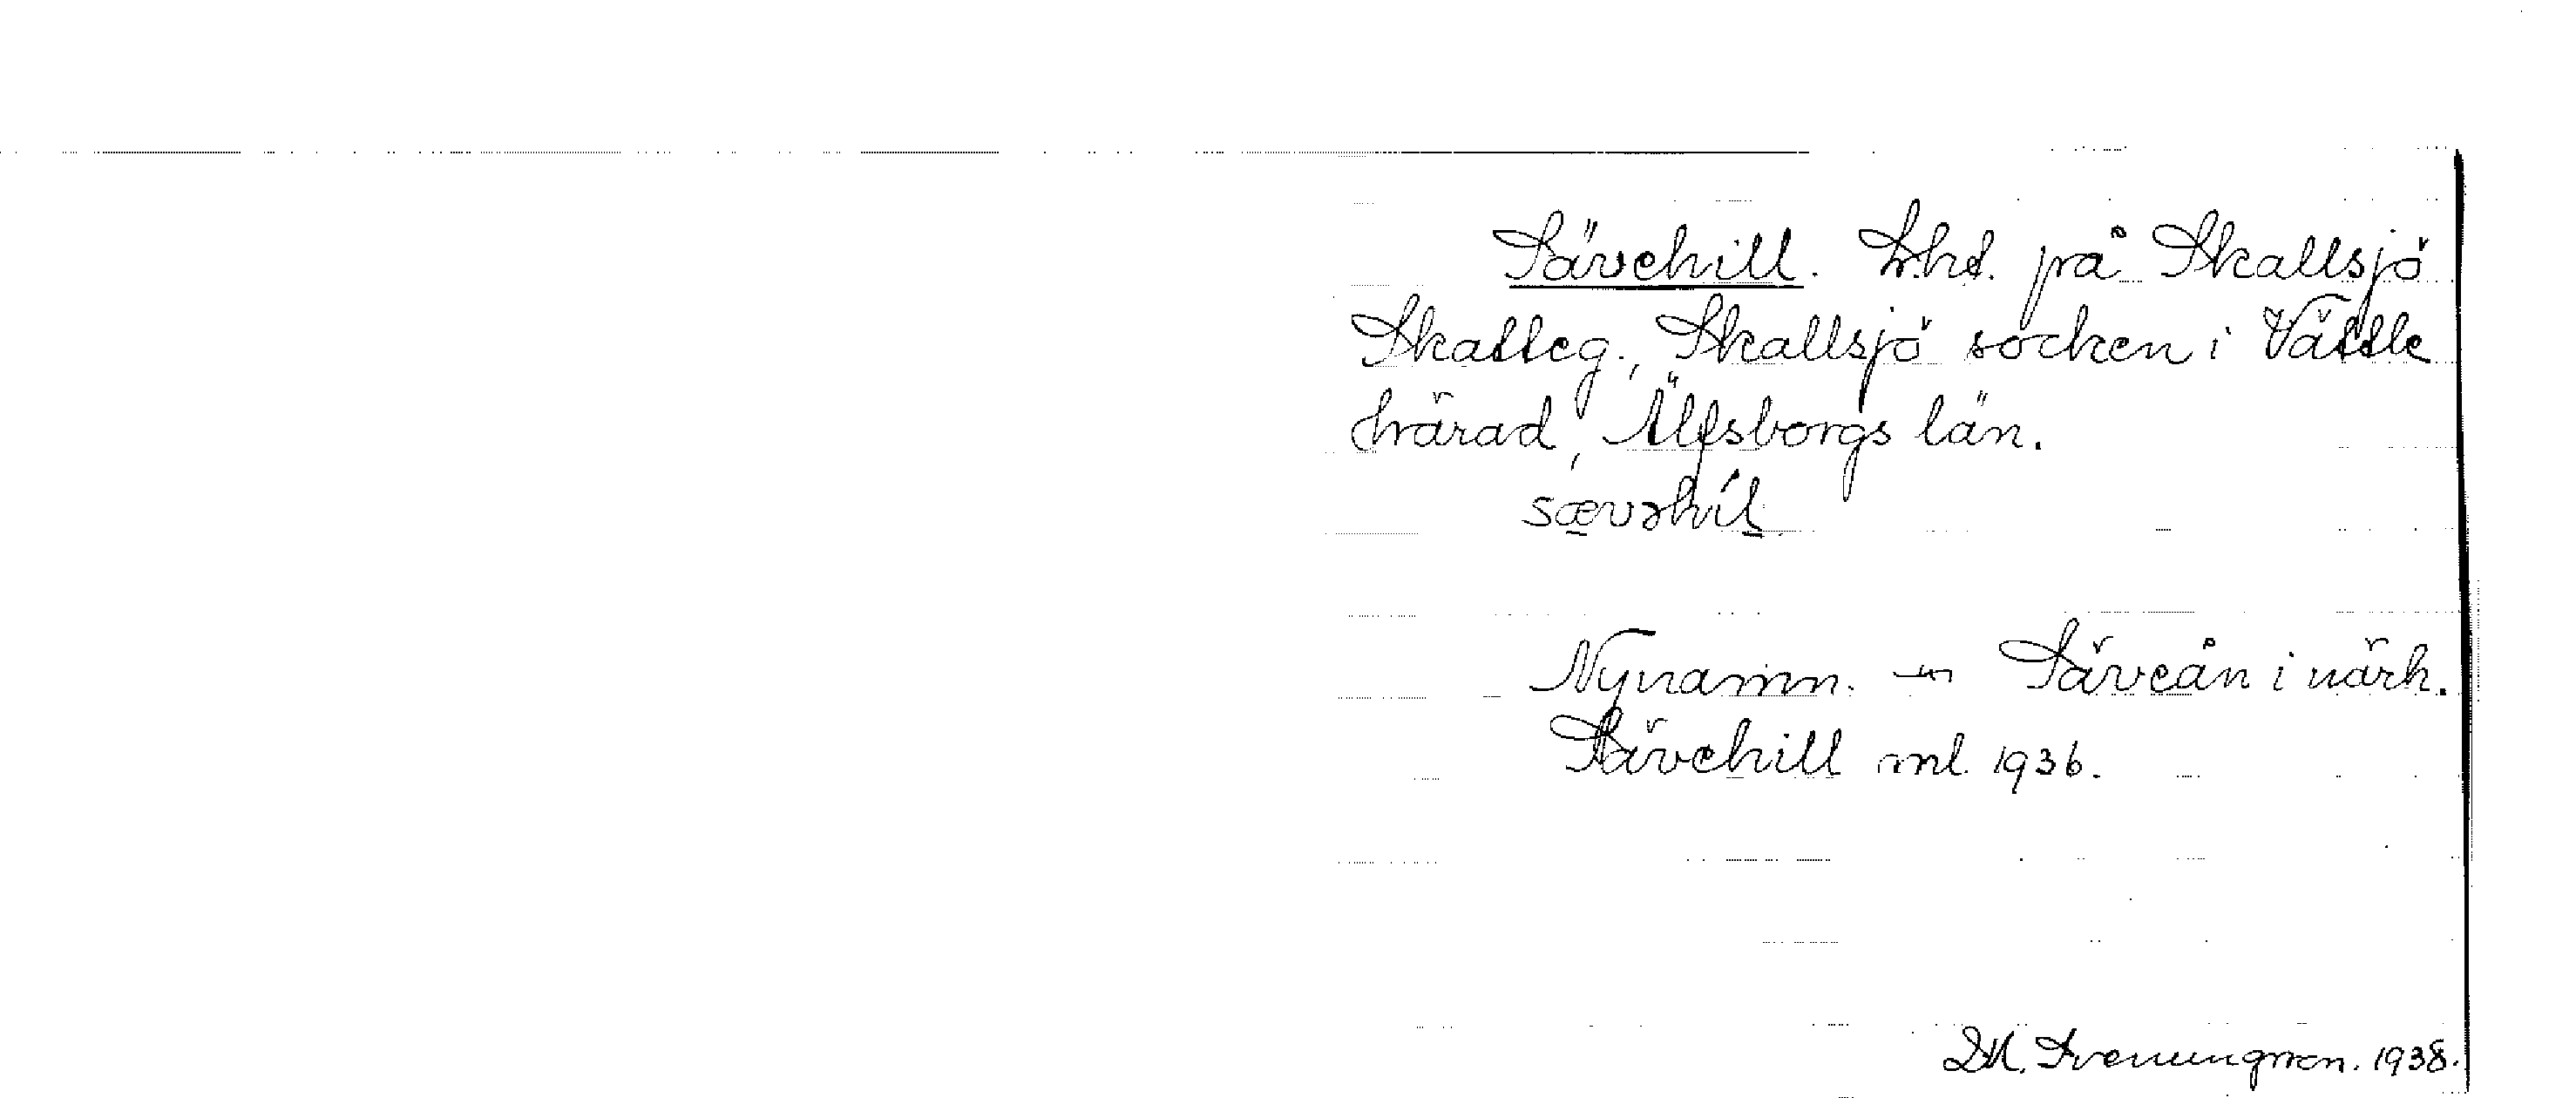 Sävehill. Lht. på Skallsjö
Skatteg., Skallsjö socken i Vättle
härad, Älfsborgs län.
sævəhíl
Nynamn. Säveån i närh.
Sävehill ml. 1936.
D.H. Svenungsson. 1938.